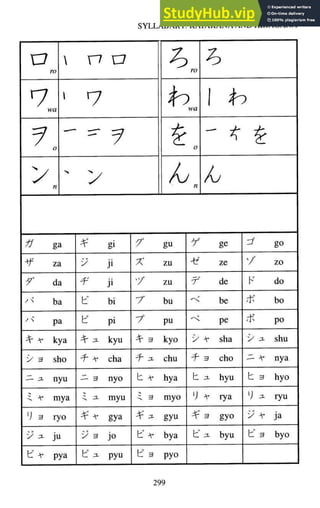 StudyHub.vip
Experienced writers
On-time delivery
100% plagiarism free
SYLLABARY
ロ ro ろ ro ろ
ワ wa わ wa わ
ヲ o を o を
ン n ん n ん
ガ ga ギ gi グ gu ゲ ge ゴ go
ザ za ジ ji ズ zu ゼ ze ゾ zo
ダ da ヂ ji ヅ zu デ de ド do
バ ba ビ bi ブ bu ベ be ボ bo
パ pa ピ pi プ pu ペ pe ポ po
キャ kya キュ kyu キョ kyo シャ sha シュ shu
ショ sho チャ cha チュ chu チョ cho ニャ nya
ニュ nyu ニョ nyo ヒャ hya ヒュ hyu ヒョ hyo
ミャ mya ミュ myu ミョ myo リャ rya リュ ryu
リョ ryo ギャ gya ギュ gyu ギョ gyo ジャ ja
ジュ ju ジョ jo ビャ bya ビュ byu ビョ byo
ピャ pya ピュ pyu ピョ pyo
299